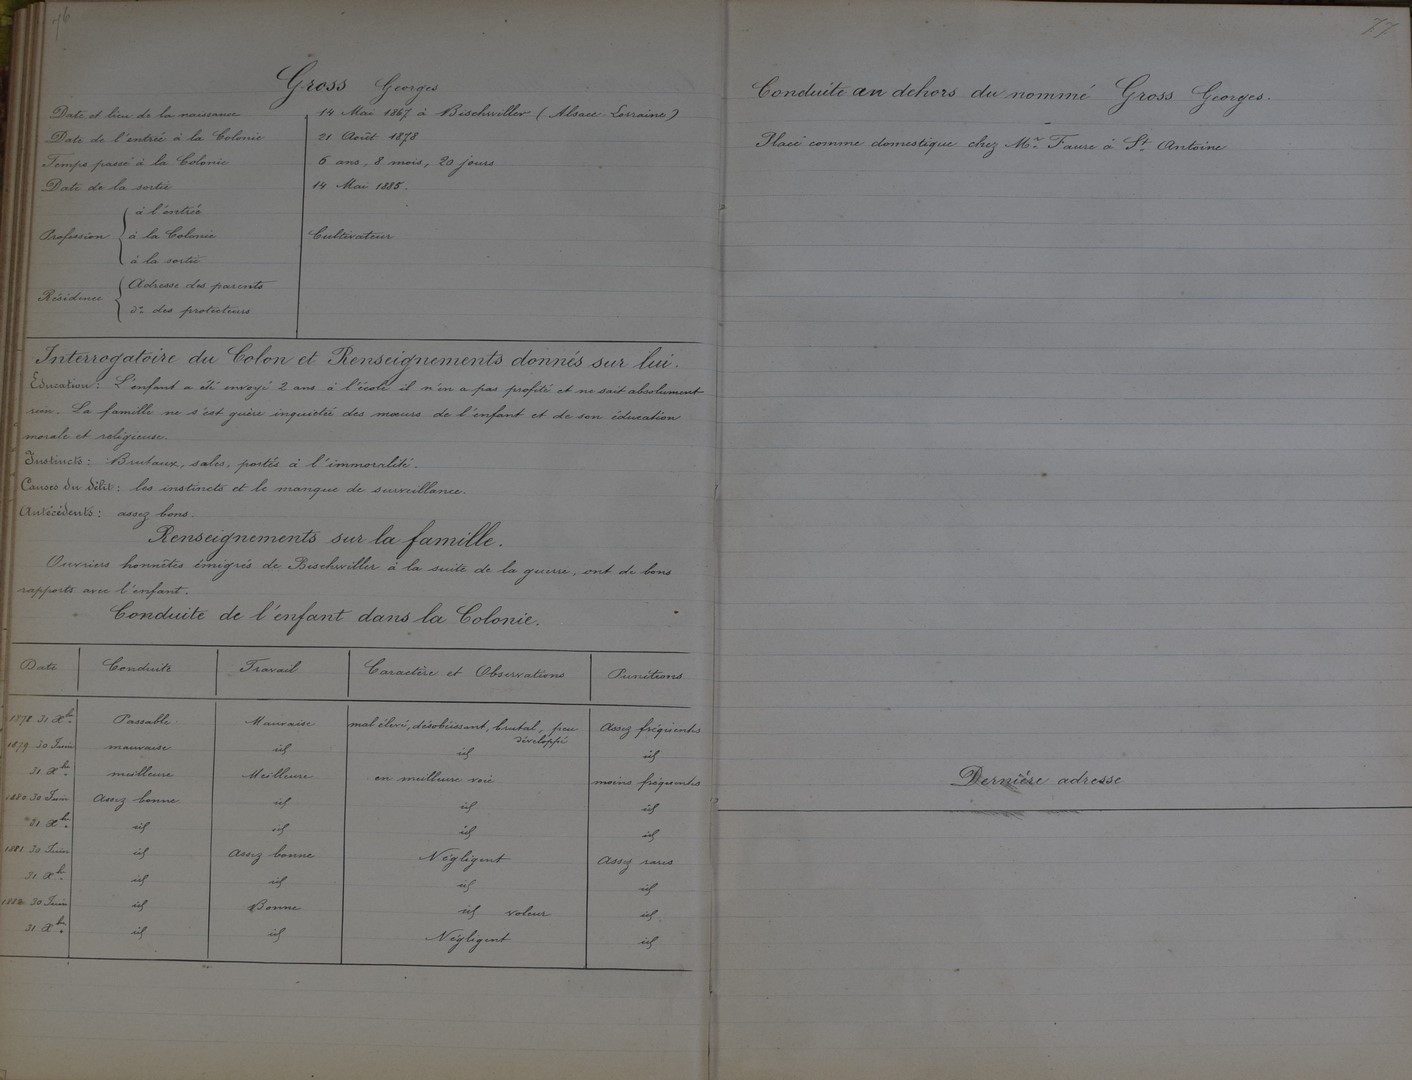 76
Gross Georges
Date et lieu de la naissance 14 Mai 1867 à Bischwiller (Alsace-Lorraine)
Date de l'entrée à la Colonie 21 Août 1878
Temps passé à la Colonie 6 ans, 8 mois, 20 jours
Date de la sortie 14 Mai 1885.
Profession
à l'entrée
à la Colonie Cultivateur
à la sortie
Résidence
Adresse des parents
do des protecteurs
Interrogatoire du Colon et Renseignements donnés sur lui.
Education: L'enfant a été envoyé 2 ans à l'école il n'en a pas profité et ne sait absolument
rien. La famille ne s'est guère inquiétée des mœurs de l'enfant et de son éducation
morale et religieuse.
Instincts: Brutaux, sales, portés à l'immoralité.
Causes du délit: les instincts et le manque de surveillance.
Antécédents: assez bons.
Renseignements sur la famille.
Ouvriers honnêtes émigrés de Bischwiller à la suite de la guerre, ont de bons
rapports avec l'enfant.
Conduite de l'enfant dans la Colonie.
Date Conduite Travail Caractère et Observations Punitions
1878 31 Xbre Passable. Mauvaise mal élevé, désobéissant, brutal, peu développé Assez fréquentes
1879 30 Juin mauvaise id id id
31 Xbre meilleure Meilleure en meilleure voie moins fréquentes
1880 30 Juin Assez bonne id id id
31 Xbre id id id id
1881 30 Juin id Assez bonne Négligent Assez rares
31 Xbre id id id id
1882 30 Juin id Bonne id voleur id
31 Xbre id id Négligent id
77
Conduite au dehors du nommé Gross Georges.
Placé comme domestique chez Mr Faure à St Antoine
Dernière adresse